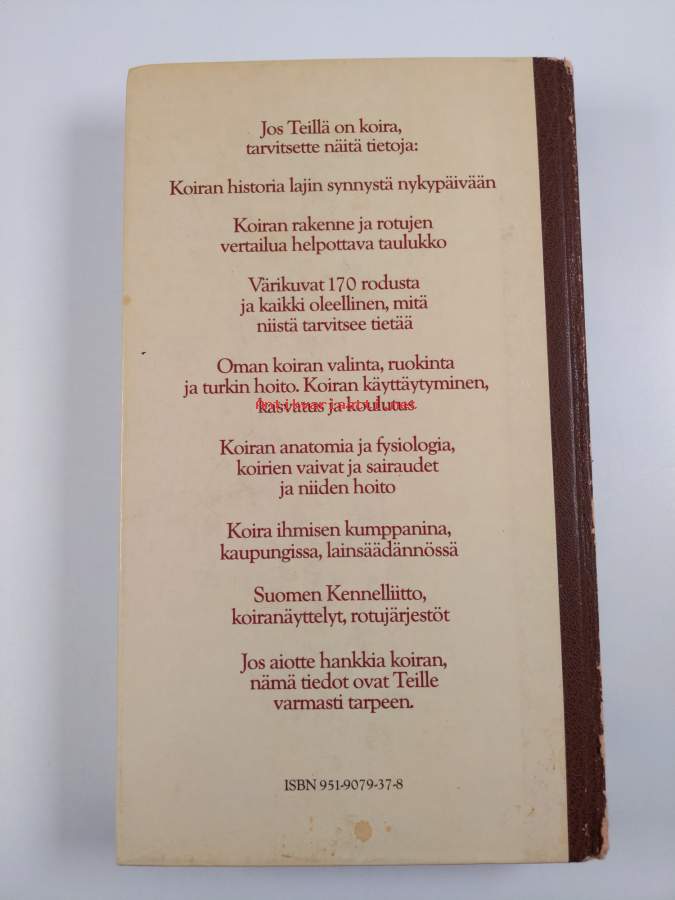 Jos Teillä on koira,
tarvitsette näitä tietoja:
Koiran historia lajin synnystä nykypäivään
Koiran rakenne ja rotujen
vertailua helpottava taulukko
Värikuvat 170 rodusta
ja kaikki oleellinen, mitä
niistä tarvitsee tietää
Oman koiran valinta, ruokinta
ja turkin hoito. Koiran käyttäytyminen,
kasvatus ja koulutus
Koiran anatomia ja fysiologia,
koirien vaivat ja sairaudet
ja niiden hoito
Koira ihmisen kumppanina,
kaupungissa, lainsäädännössä
Suomen Kennelliitto,
koiranäyttelyt, rotujärjestöt
Jos aiotte hankkia koiran,
nämä tiedot ovat Teille
varmasti tarpeen.
ISBN 951-9079-37-8